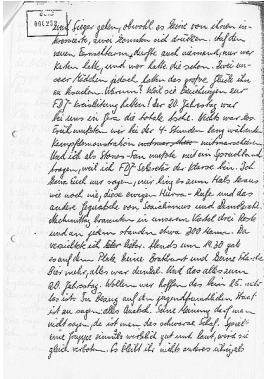 und Sieger geben, obwohl es keine von ihnen in-
teressierte, zwei Bananen sich drücken. Auf den
neuen durfte auch niemand, nur wer
Karten hatte, und wer hatte die schon. Zwei un-
serer Mädchen jedoch hatten das große Glück ihn
zu besuchen. Warum? Weil sie Beziehungen zur
FDJ-Kreisleitung hatten! Der 20. Jahrestag war
bei uns in Gera die totale Sch. Nichts war los.
Früh mußten wir bei der 4 Stunden lang während
Kampfdemonstration mitmarschieren.
Und ich als Stones-Fan mußte mit ein Spruchband
tragen, weil ich FDJ-Sekretär der Klasse bin. Ich
kann Euch nur sagen, mir hing es zum Hals heraus
wie noch nie, diese ewigen Hurra-Rufe und das
andere von Sozialismus und
Nachmittag in unserem Viertel drei Rocks
und an jedem standen etwa 200 Mann. Da
verzichtete ich lieber. Abends um 19.30 gab
es auf dem Platz keine Bratwurst und keine Klarte
Bier mehr, alles war dunkel. Und das alles zum
20. Jahrestag. Wollen wir hoffen, das kein 25. mehr
es ist. In Bezug auf den jugendfreundlichen Staat
ist zu sagen alles Quatsch. Seine Meinung darf man
nicht sagen, da ist man das schwarze Schaf. Spielt
eine Gruppe wirklich gut und laut, wird sie
gleich verboten. Es bleibt ihr nichts anderes übrig als